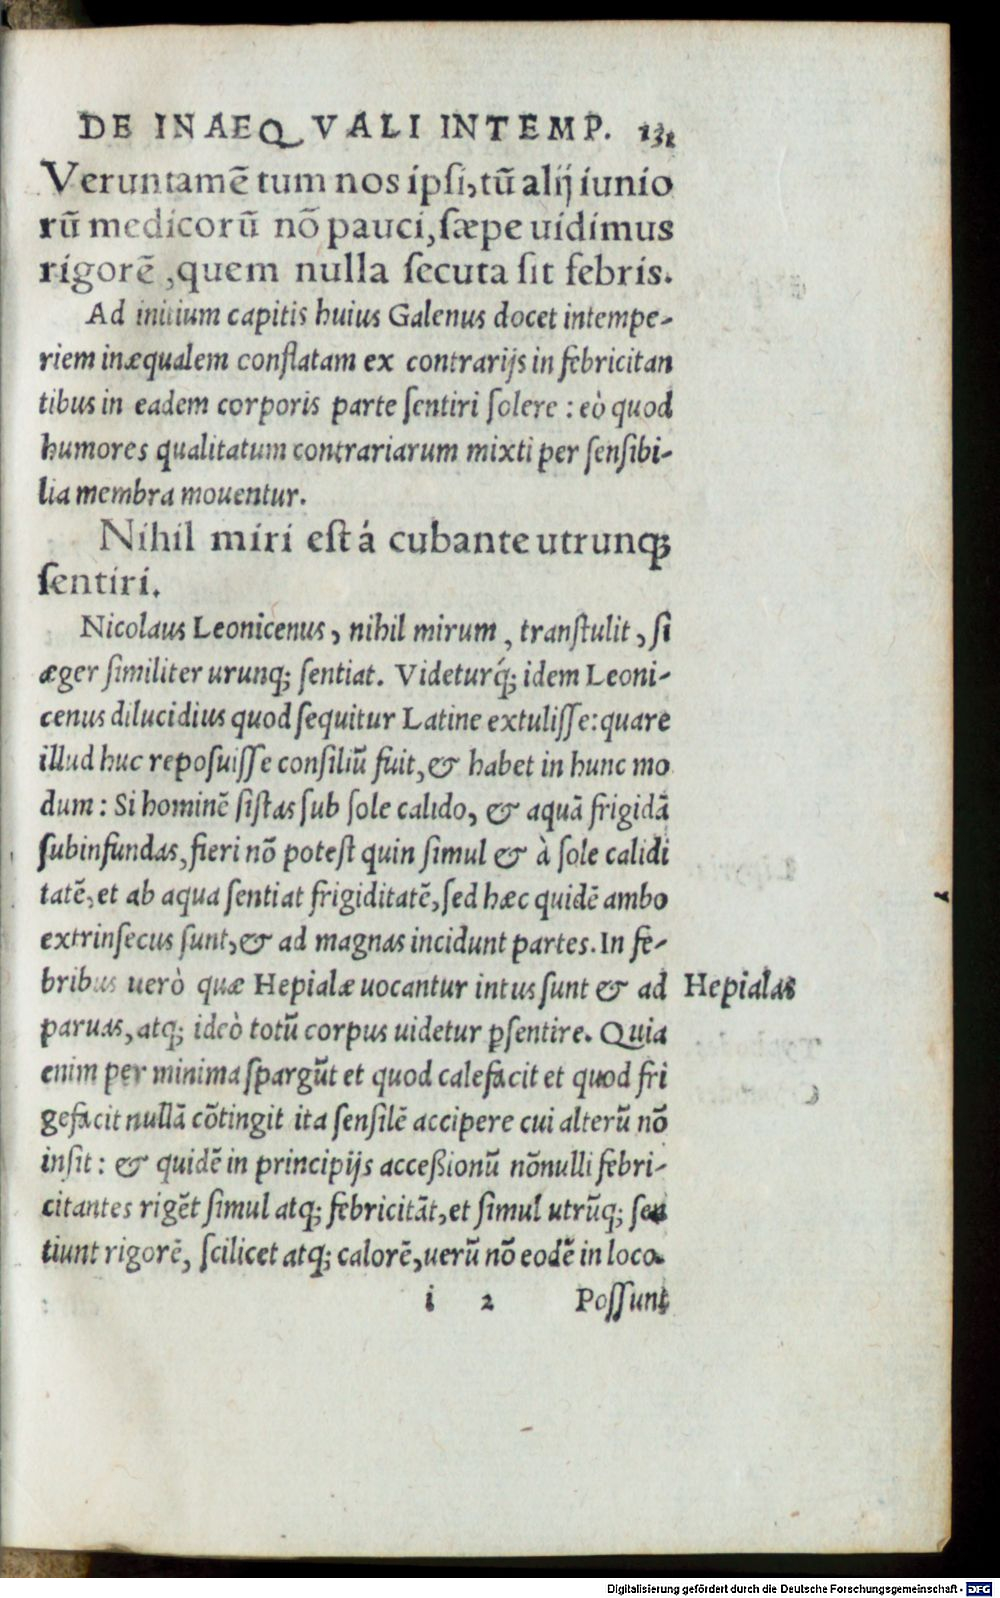 DE INAEQVALI INTEMP. 131
Veruntamē tum nos ipsi, tū alij iunio
rū medicorū nō pauci, sæpe uidimus
rigorē, quem nulla secuta sit febris.
Ad initium capitis huius Galenus docet intempe-
riem inæqualem conflatam ex contrarijs in febricitan
tibus in eadem corporis parte sentiri solere : eò quod
humores qualitatum contrariarum mixti per sensibi-
lia membra mouentur.
Nihil miri est á cubante utrunq;
sentiri.
Nicolaus Leonicenus, nihil mirum, transtulit, si
æger similiter urunq; sentiat. Videturq́; idem Leoni-
cenus dilucidius quod sequitur Latine extulisse: quare
illud huc reposuisse consiliū fuit, & habet in hunc mo
dum : Si hominē sistas sub sole calido, & aquā frigidā
subinfundas, fieri nō potest quin simul & à sole calidi
tatē, et ab aqua sentiat frigiditatē, sed hæc quidē ambo
extrinsecus sunt, & ad magnas incidunt partes. In fe-
bribus uerò quæ Hepialæ uocantur intus sunt & ad
Hepialas
paruas, atq; ideò totū corpus uidetur ꝑsentire. Quia
enim per minima spargūt et quod calefacit et quod fri
gefacit nullā cōtingit ita sensilē accipere cui alterū nō
insit : & quidē in principijs acceßionū nōnulli febri-
citantes rigēt simul atq; febricitāt, et simul utrūq; sen
tiunt rigorē, scilicet atq; calorē, uerū nō eodē in loco.
i 2 Possunt
Digitalisierung gefördert durch die Deutsche Forschungsgemeinschaft - DFG